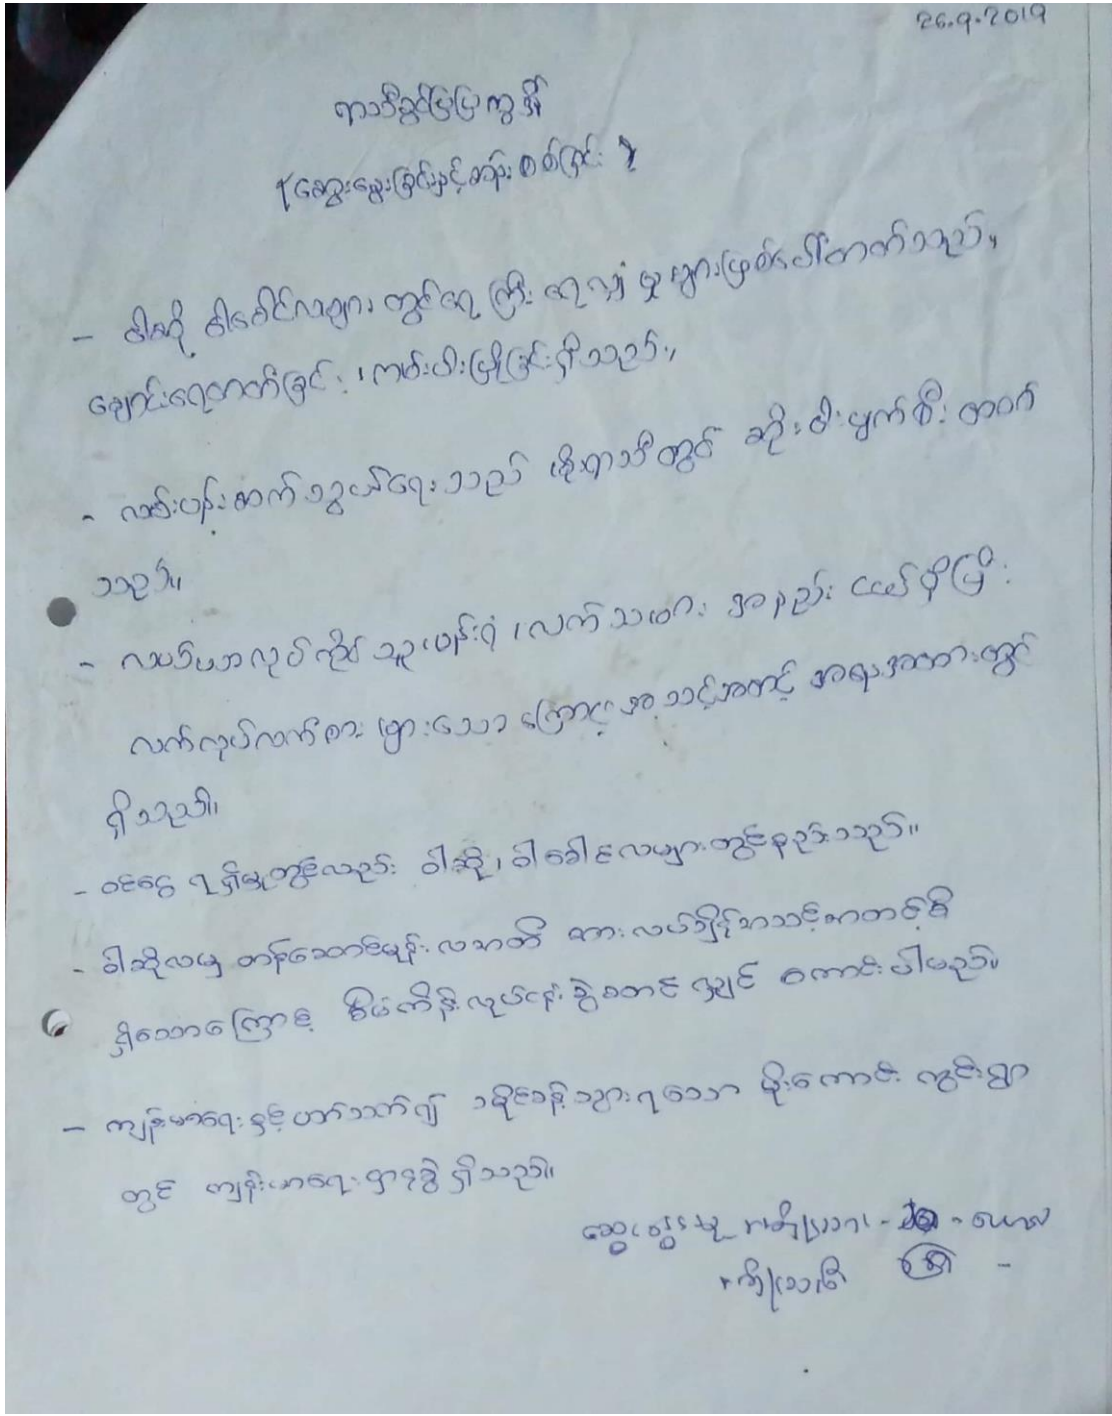 26.9.2019
ရာသီခွင်ပြပြက္ခဒိန်
(ဆွေးနွေးခြင်းနှင့်ဆန်းစစ်ခြင်း)
- ဝါဆို ဝါခေါင်လများ တွင်ရေကြီး ရေလျှံမှု များဖြစ်ပေါ်တတ်သည်။
ချောင်းရေတက်ခြင်း၊ ကမ်းပါးပြိုခြင်းရှိသည်။
- လမ်းပန်းဆက်သွယ်ရေးသည် မိုးရာသီတွင် ဆိုးဝါးပျက်စီး တတ်
သည်။
- လယ်ယာလုပ်ကိုင်သူ၊ ပန်းရံ၊ လက်သမား အနည်းငယ်ရှိပြီး
လက်လုပ်လက်စား များသော ကြောင့် အသင့်အတင့် အနေအထားတွင်
ရှိသည်။
- ဝင်ငွေ ရရှိမှုတွင်လည်း ဝါဆို၊ ဝါခေါင်လများတွင်နည်းသည်။
- ဝါဆိုလမှ တန်ဆောင်မုန်းလအထိ အားလပ်ချိန်အသင့်အတင့်
ရှိသောကြောင့် စီမံကိန်းလုပ်ငန်း စတင်လျှင် ကောင်းပါမည်။
- ကျန်းမာရေးနှင့်ပတ်သက်၍ သွားရသော မိုးကောင်း ကွင်းရွာ
တွင် ကျန်းမာရေးဌာနခွဲရှိသည်။
ဆွေးနွေးသူ အမျိုးသား -
အမျိုးသမီး -